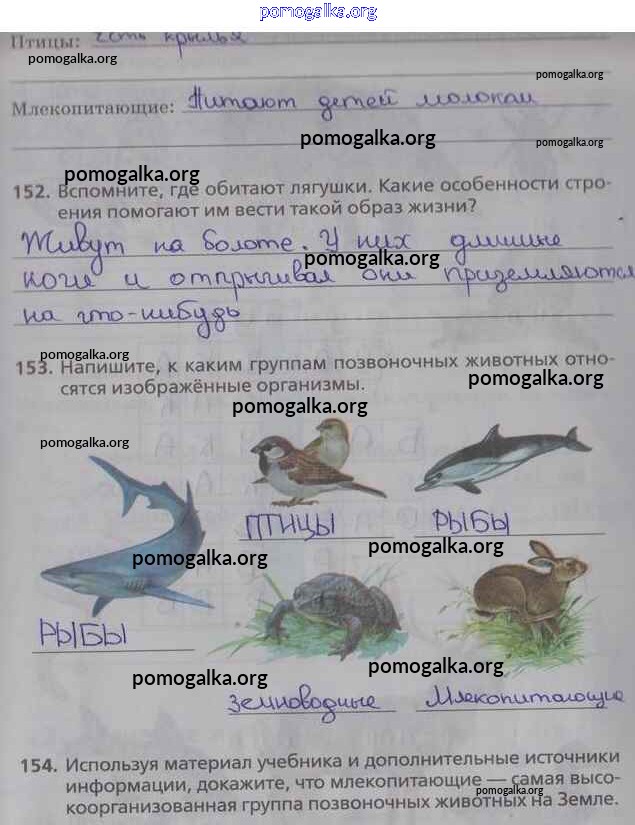 pomogalka.org
Птицы: есть крылья
pomogalka.org
pomogalka.org
Млекопитающие: Питают детей молоком
pomogalka.org
pomogalka.org
pomogalka.org
152. Вспомните, где обитают лягушки. Какие особенности стро-
ения помогают им вести такой образ жизни?
Живут на болоте. У них длинные
pomogalka.org
ноги и отпрыгивая они приземляются
на что-нибудь
pomogalka.org
153. Напишите, к каким группам позвоночных животных отно-
сятся изображённые организмы.
pomogalka.org
pomogalka.org
pomogalka.org
ПТИЦЫ РЫБЫ
pomogalka.org
pomogalka.org
РЫБЫ
pomogalka.org
pomogalka.org
Земноводные Млекопитающие
154. Используя материал учебника и дополнительные источники
информации, докажите, что млекопитающие — самая высо-
pomogalka.org
коорганизованная группа позвоночных животных на Земле.